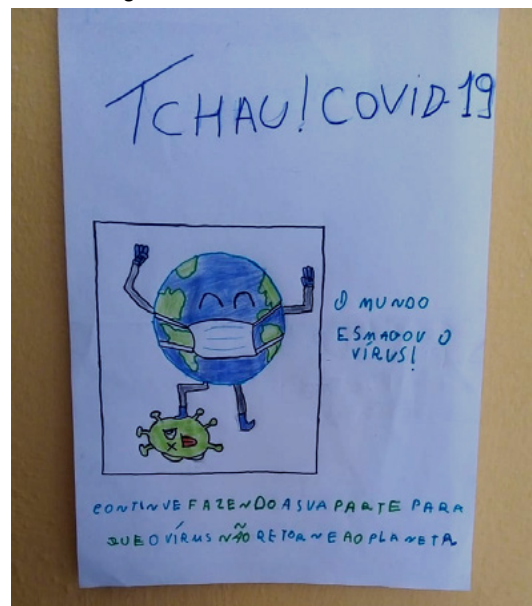 TCHAU! COVID-19
O MUNDO
ESMAGOU O
VÍRUS!
CONTINUE FAZENDO A SUA PARTE PARA
QUE O VÍRUS NÃO RETORNE AO PLANETA